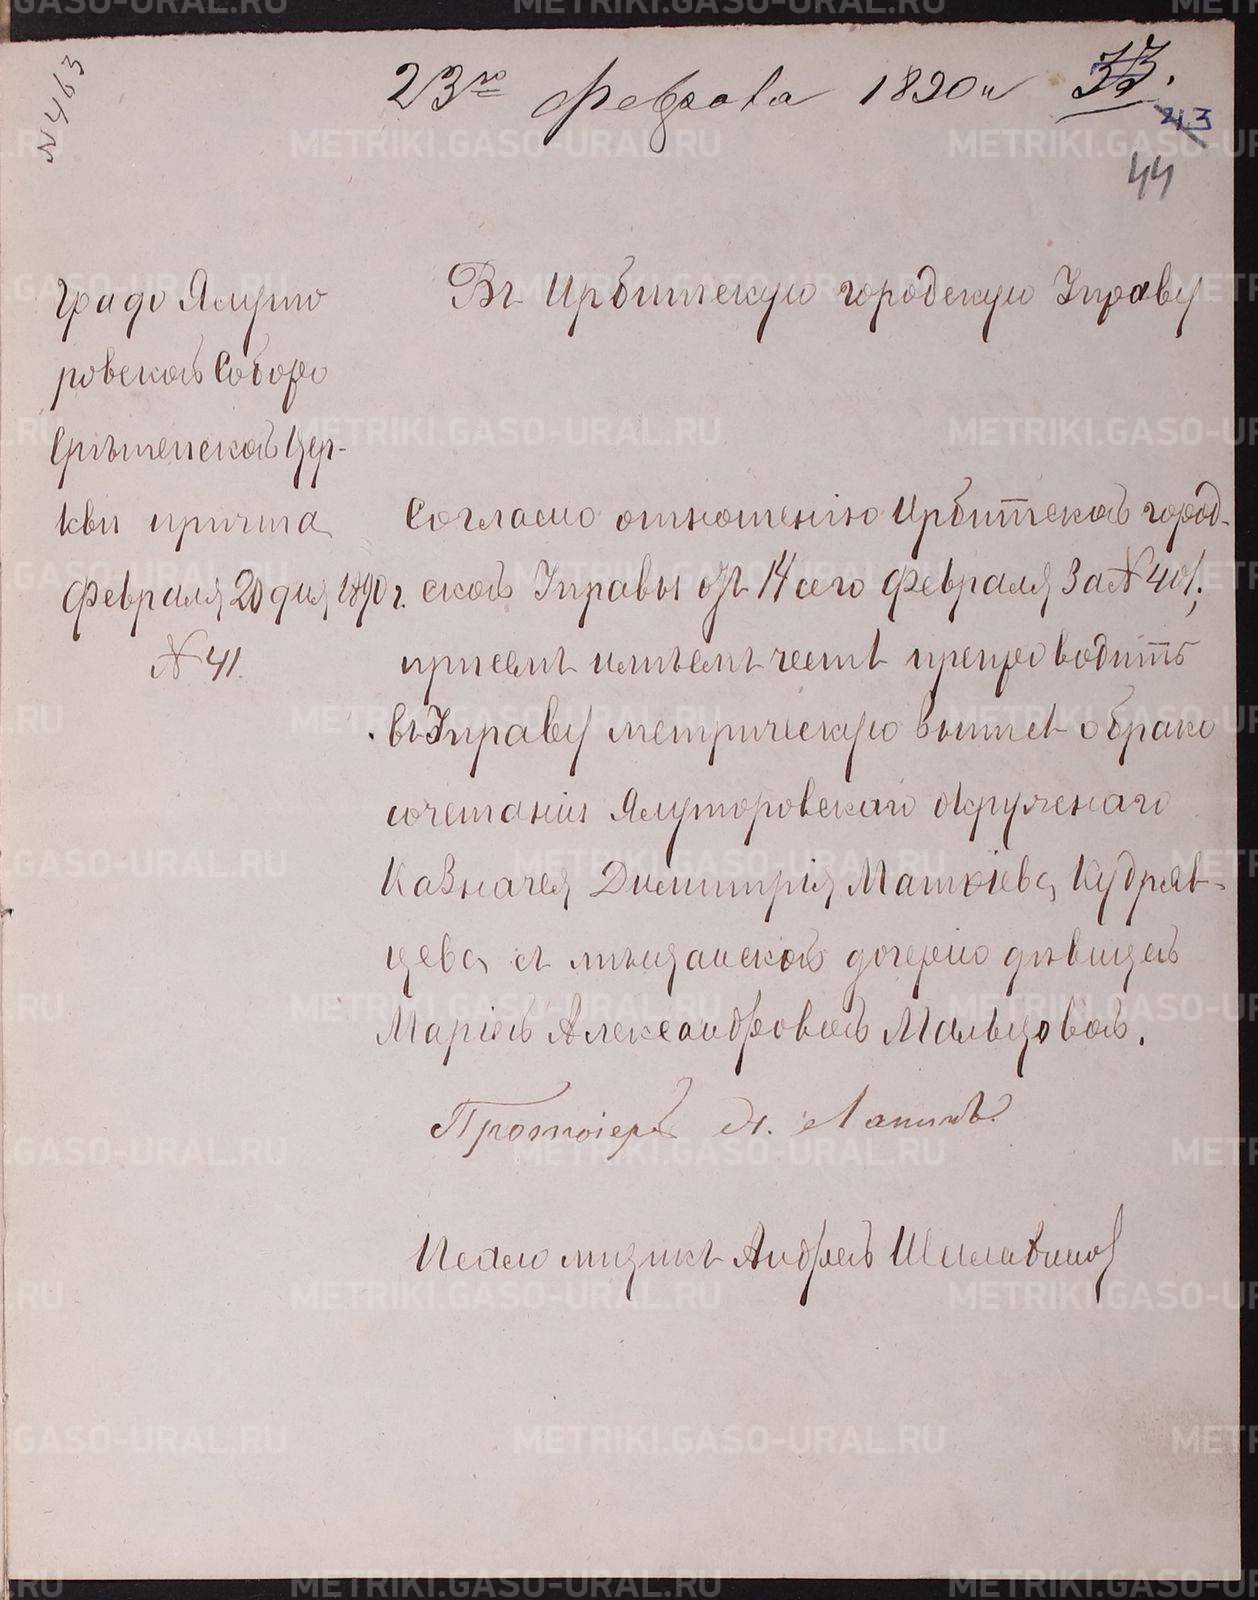 № 463
23го февраля 1890 г.
33.
43
44
Градо Ялуто
ровской Соборо
Срѣтенской Цер-
кви причта
Февраля 20 дня 1890 г.
№ 41.
Въ Ирбитскую городскую Управу
Согласно отношенію Ирбитской город-
ской Управы отъ 14 сего Февраля за № 401,
причтъ имѣетъ честь препроводить
въ Управу метрическую выпись о брако
сочетаніи Ялуторовскаго Окружнаго
Казначея Димитрія Матвѣева Кудряв-
цева съ мѣщанской дочерью дѣвицей
Маріей Александровой Мальцовой.
Протоіерей Лапинъ.
Псаломщикъ Андрей
METRIKI.GASO-URAL.RU